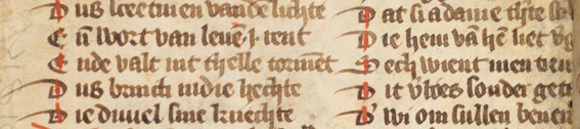 D us sceetmen vande lichte
E ñ wort van leuē ȷ uent
E nde valt int thelle tormēt
D us brinct in die hechte
D ie duuel sine knechte
D at si adame
D ie hem vā hē liet
S ech wient men
D it vloes sonder
D wi om sullen